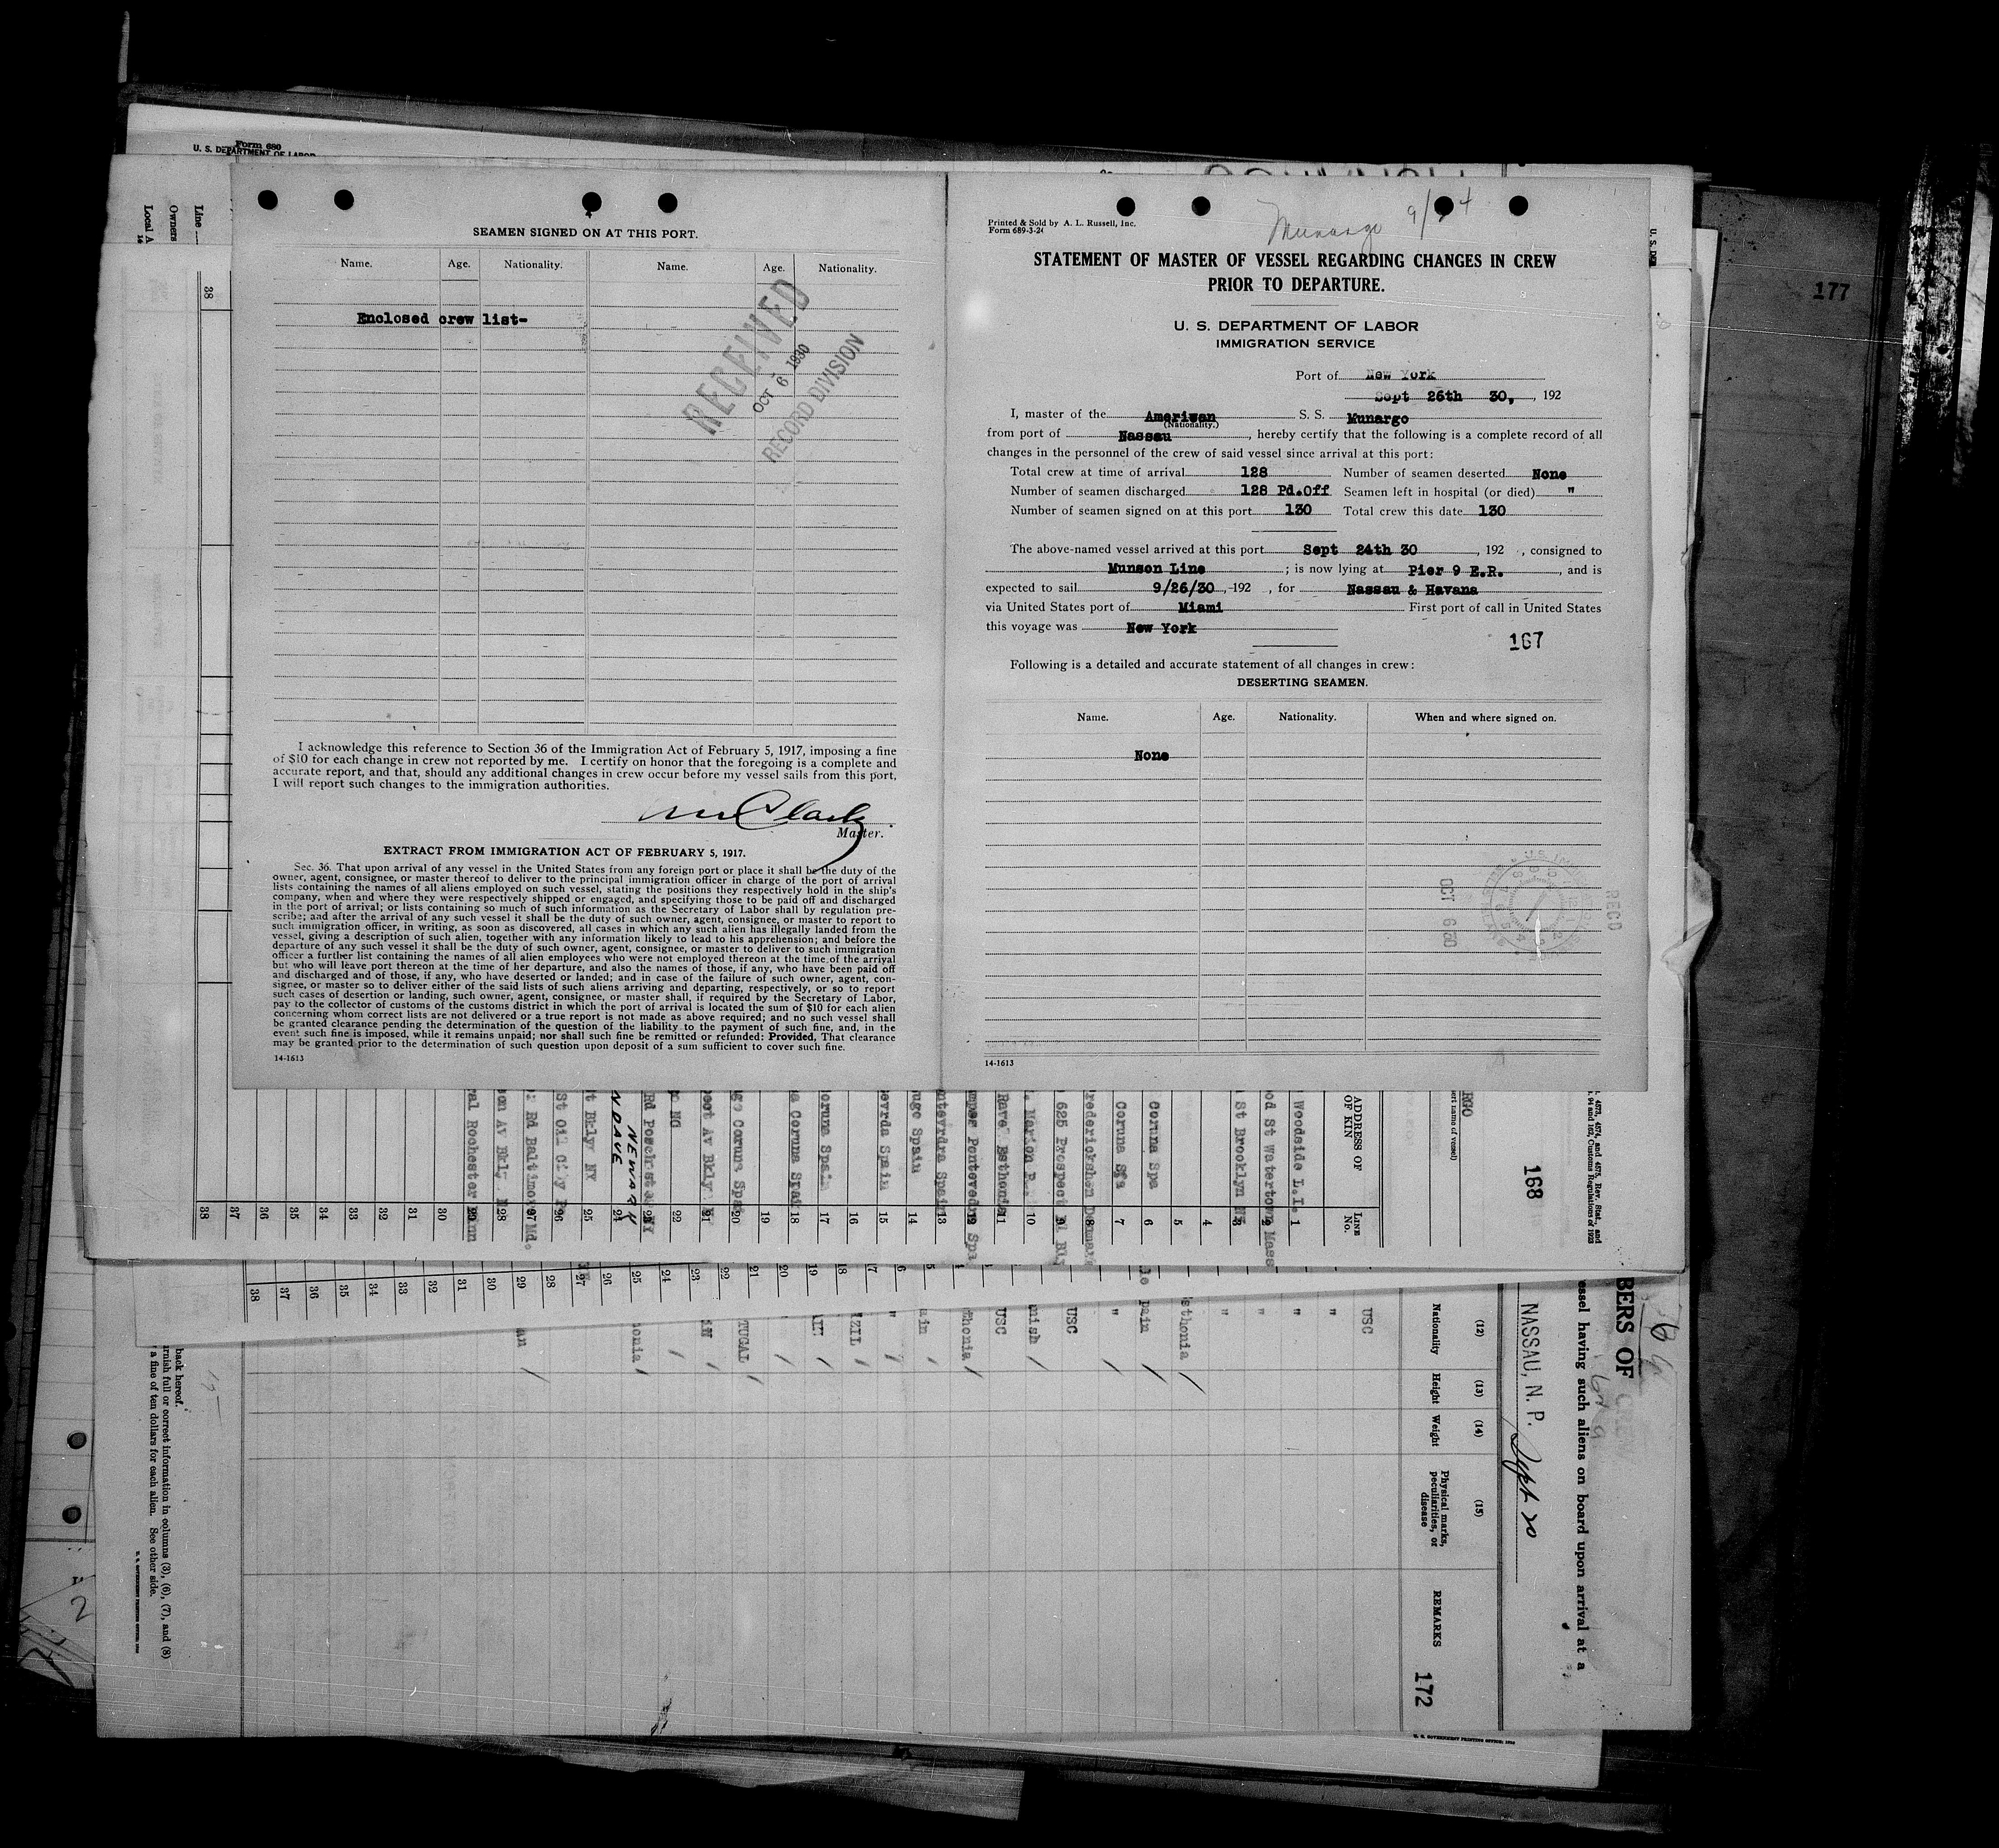 Form 680
U. S. DEPARTMENT OF LABOR
Local A
Owners
Line
38
SEAMEN SIGNED ON AT THIS PORT.
Name. Age. Nationality. Name. Age. Nationality.
Enclosed crew list-
RECEIVED
OCT 6 1930
RECORD DIVISION
I acknowledge this reference to Section 36 of the Immigration Act of February 5, 1917, imposing a fine
of $10 for each change in crew not reported by me. I certify on honor that the foregoing is a complete and
accurate report, and that, should any additional changes in crew occur before my vessel sails from this port,
I will report such changes to the immigration authorities.
Clark
Master.
EXTRACT FROM IMMIGRATION ACT OF FEBRUARY 5, 1917.
Sec. 36. That upon arrival of any vessel in the United States from any foreign port or place it shall be the duty of the
owner, agent, consignee, or master thereof to deliver to the principal immigration officer in charge of the port of arrival
lists containing the names of all aliens employed on such vessel, stating the positions they respectively hold in the ship's
company, when and where they were respectively shipped or engaged, and specifying those to be paid off and discharged
in the port of arrival; or lists containing so much of such information as the Secretary of Labor shall by regulation pre-
scribe; and after the arrival of any such vessel it shall be the duty of such owner, agent, consignee, or master to report to
such immigration officer, in writing, as soon as discovered, all cases in which any such alien has illegally landed from the
vessel, giving a description of such alien, together with any information likely to lead to his apprehension; and before the
departure of any such vessel it shall be the duty of such owner, agent, consignee, or master to deliver to such immigration
officer a further list containing the names of all alien employees who were not employed thereon at the time of the arrival
but who will leave port thereon at the time of her departure, and also the names of those, if any, who have been paid off
and discharged and of those, if any, who have deserted or landed; and in case of the failure of such owner, agent, con-
signee, or master so to deliver either of the said lists of such aliens arriving and departing, respectively, or so to report
such cases of desertion or landing, such owner, agent, consignee, or master shall, if required by the Secretary of Labor,
pay to the collector of customs of the customs district in which the port of arrival is located the sum of $10 for each alien
concerning whom correct lists are not delivered or a true report is not made as above required; and no such vessel shall
be granted clearance pending the determination of the question of the liability to the payment of such fine, and, in the
event such fine is imposed, while it remains unpaid; nor shall such fine be remitted or refunded: Provided, That clearance
may be granted prior to the determination of such question upon deposit of a sum sufficient to cover such fine.
14-1613
Printed & Sold by A. L. Russell, Inc.
Form 689-3-24
Munargo 9/24
STATEMENT OF MASTER OF VESSEL REGARDING CHANGES IN CREW
PRIOR TO DEPARTURE.
U. S. DEPARTMENT OF LABOR
IMMIGRATION SERVICE
Port of New York
Sept 26th 30, , 192
I, master of the Ameriwan S. S. Munargo
(Nationality.)
from port of Nassau , hereby certify that the following is a complete record of all
changes in the personnel of the crew of said vessel since arrival at this port:
Total crew at time of arrival 128 Number of seamen deserted None
Number of seamen discharged 128 Pd.Off Seamen left in hospital (or died) "
Number of seamen signed on at this port 130 Total crew this date 130
The above-named vessel arrived at this port Sept 24th 30 , 192 , consigned to
Munson Line ; is now lying at Pier 9 E.R. , and is
expected to sail 9/26/30 , 192 , for Nassau & Havana
via United States port of Miami First port of call in United States
this voyage was New York
167
Following is a detailed and accurate statement of all changes in crew:
DESERTING SEAMEN.
Name. Age. Nationality. When and where signed on.
None
OCT 6 30
RECD
14-1613
177
ADDRESS OF
OF KIN
LINE
No.
168
Woodside L.I. 1
od St Watertown Mass 2
St Brooklyn NY 3
4
5
Coruna Spa 6
Coruna Spa 7
rederickshen Denmark 8
625 Prospect Pl Bk 9
10
Ravel Esthonia 11
Pontevedra Spa 12
ntevrdra Spain 13
ugo Spain 14
evrda Spain 15
16
oruna Spain 17
a Coruna Spain 18
19
go Coruna Spa 20
pect Av Bkly 21
22
Rd Poschester NY 23
NEWARK
N DAVE 24
t Bklyn NY 25
St Oil City 26
Rd Baltimore Md. 27
on Av Bkly N 28
ral Rochester 29
30
31
32
33
34
35
36
37
38
BERS OF CREW
essel having such aliens on board upon arrival at a
NASSAU, N. P. Sept 20
(12) (13) (14) (15)
Nationality Height Weight Physical marks, peculiarities, or disease REMARKS
172
USC
"
"
sthonia
pain
"
USC
nish
USC
thonia
ain
"
ZIL
TUGAL
onia
an
back hereof.
rnish full or correct information in columns (3), (6), (7), and (8)
a fine of ten dollars for each alien. See other side.
U. S. GOVERNMENT PRINTING OFFICE
2